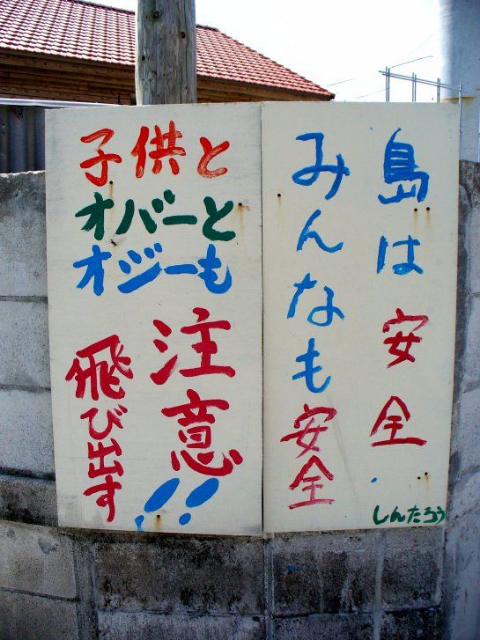 島は安全
みんなも安全
しんたろう
子供と
オバーと
オジーも
注意!!
飛び出す